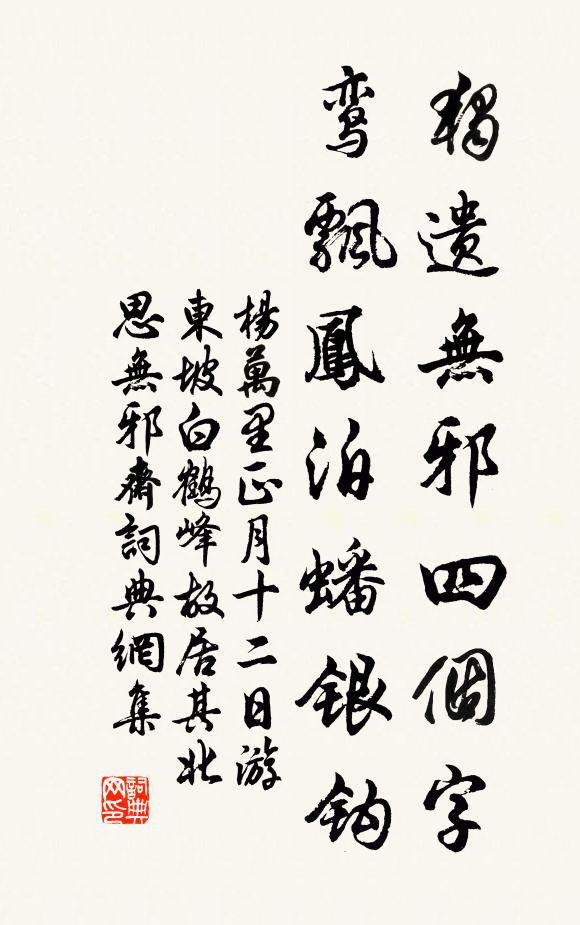 獨遺無邪四個字
鸾飄鳳泊蟠銀鉤
楊萬里正月十二日游
東坡白鶴峰故居其北
思無邪齋詞典網集
詞典网印